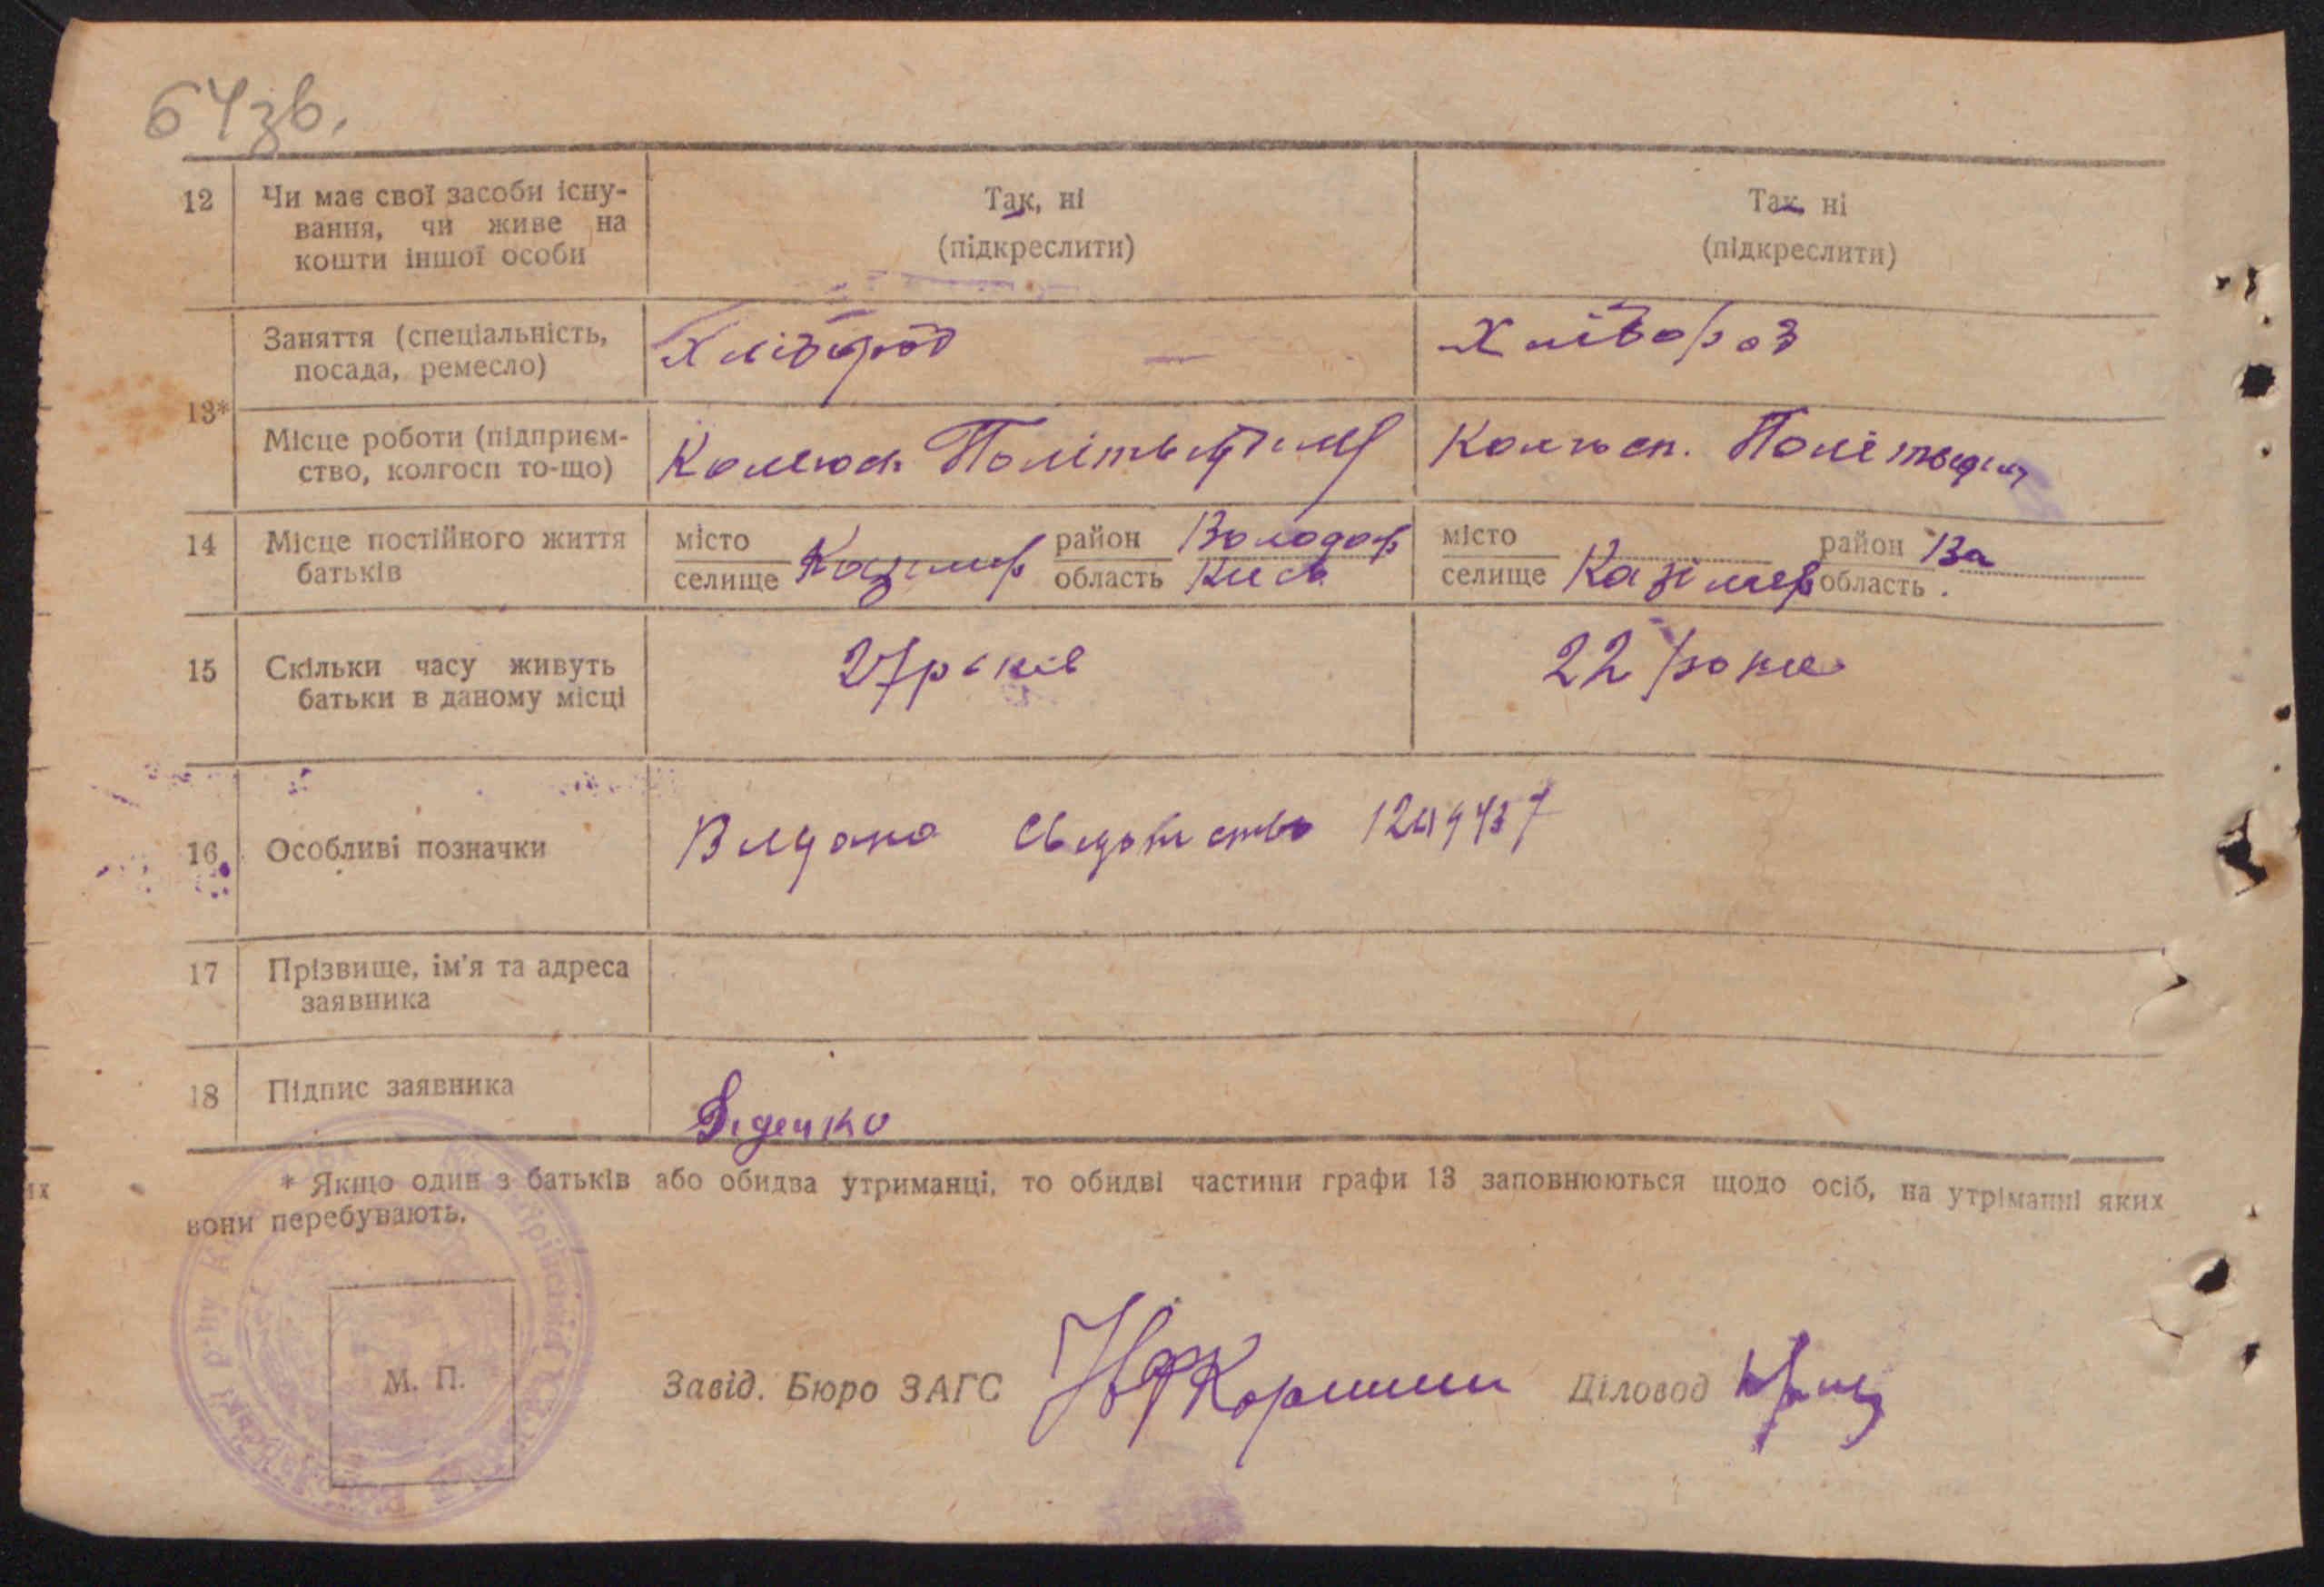 64зв.
12 Чи має свої засоби існу-
вання, чи живе на
кошти іншої особи
Так, ні
(підкреслити)
Так, ні
(підкреслити)
13*
Заняття (спеціальність,
посада, ремесло)
Хлібороб
Хлібороб
Місце роботи (підприєм-
ство, колгосп то-що)
Колгосп Політвідділ
Колгосп. Політвідділ
14 Місце постійного життя
батьків
місто
селище Казимер
район Володар
область Киев
місто
селище Казімер
район Во
область
15 Скільки часу живуть
батьки в даному місці
27 років
22 роки
16 Особливі позначки
Видано свідотство
17 Прізвище, ім'я та адреса
заявника
18 Підпис заявника
Діденко
* Якщо один з батьків або обидва утриманці, то обидві частини графи 13 заповнюються щодо осіб, на утріманні яких
вони перебувають.
М. П.
Завід. Бюро ЗАГС
Діловод
их